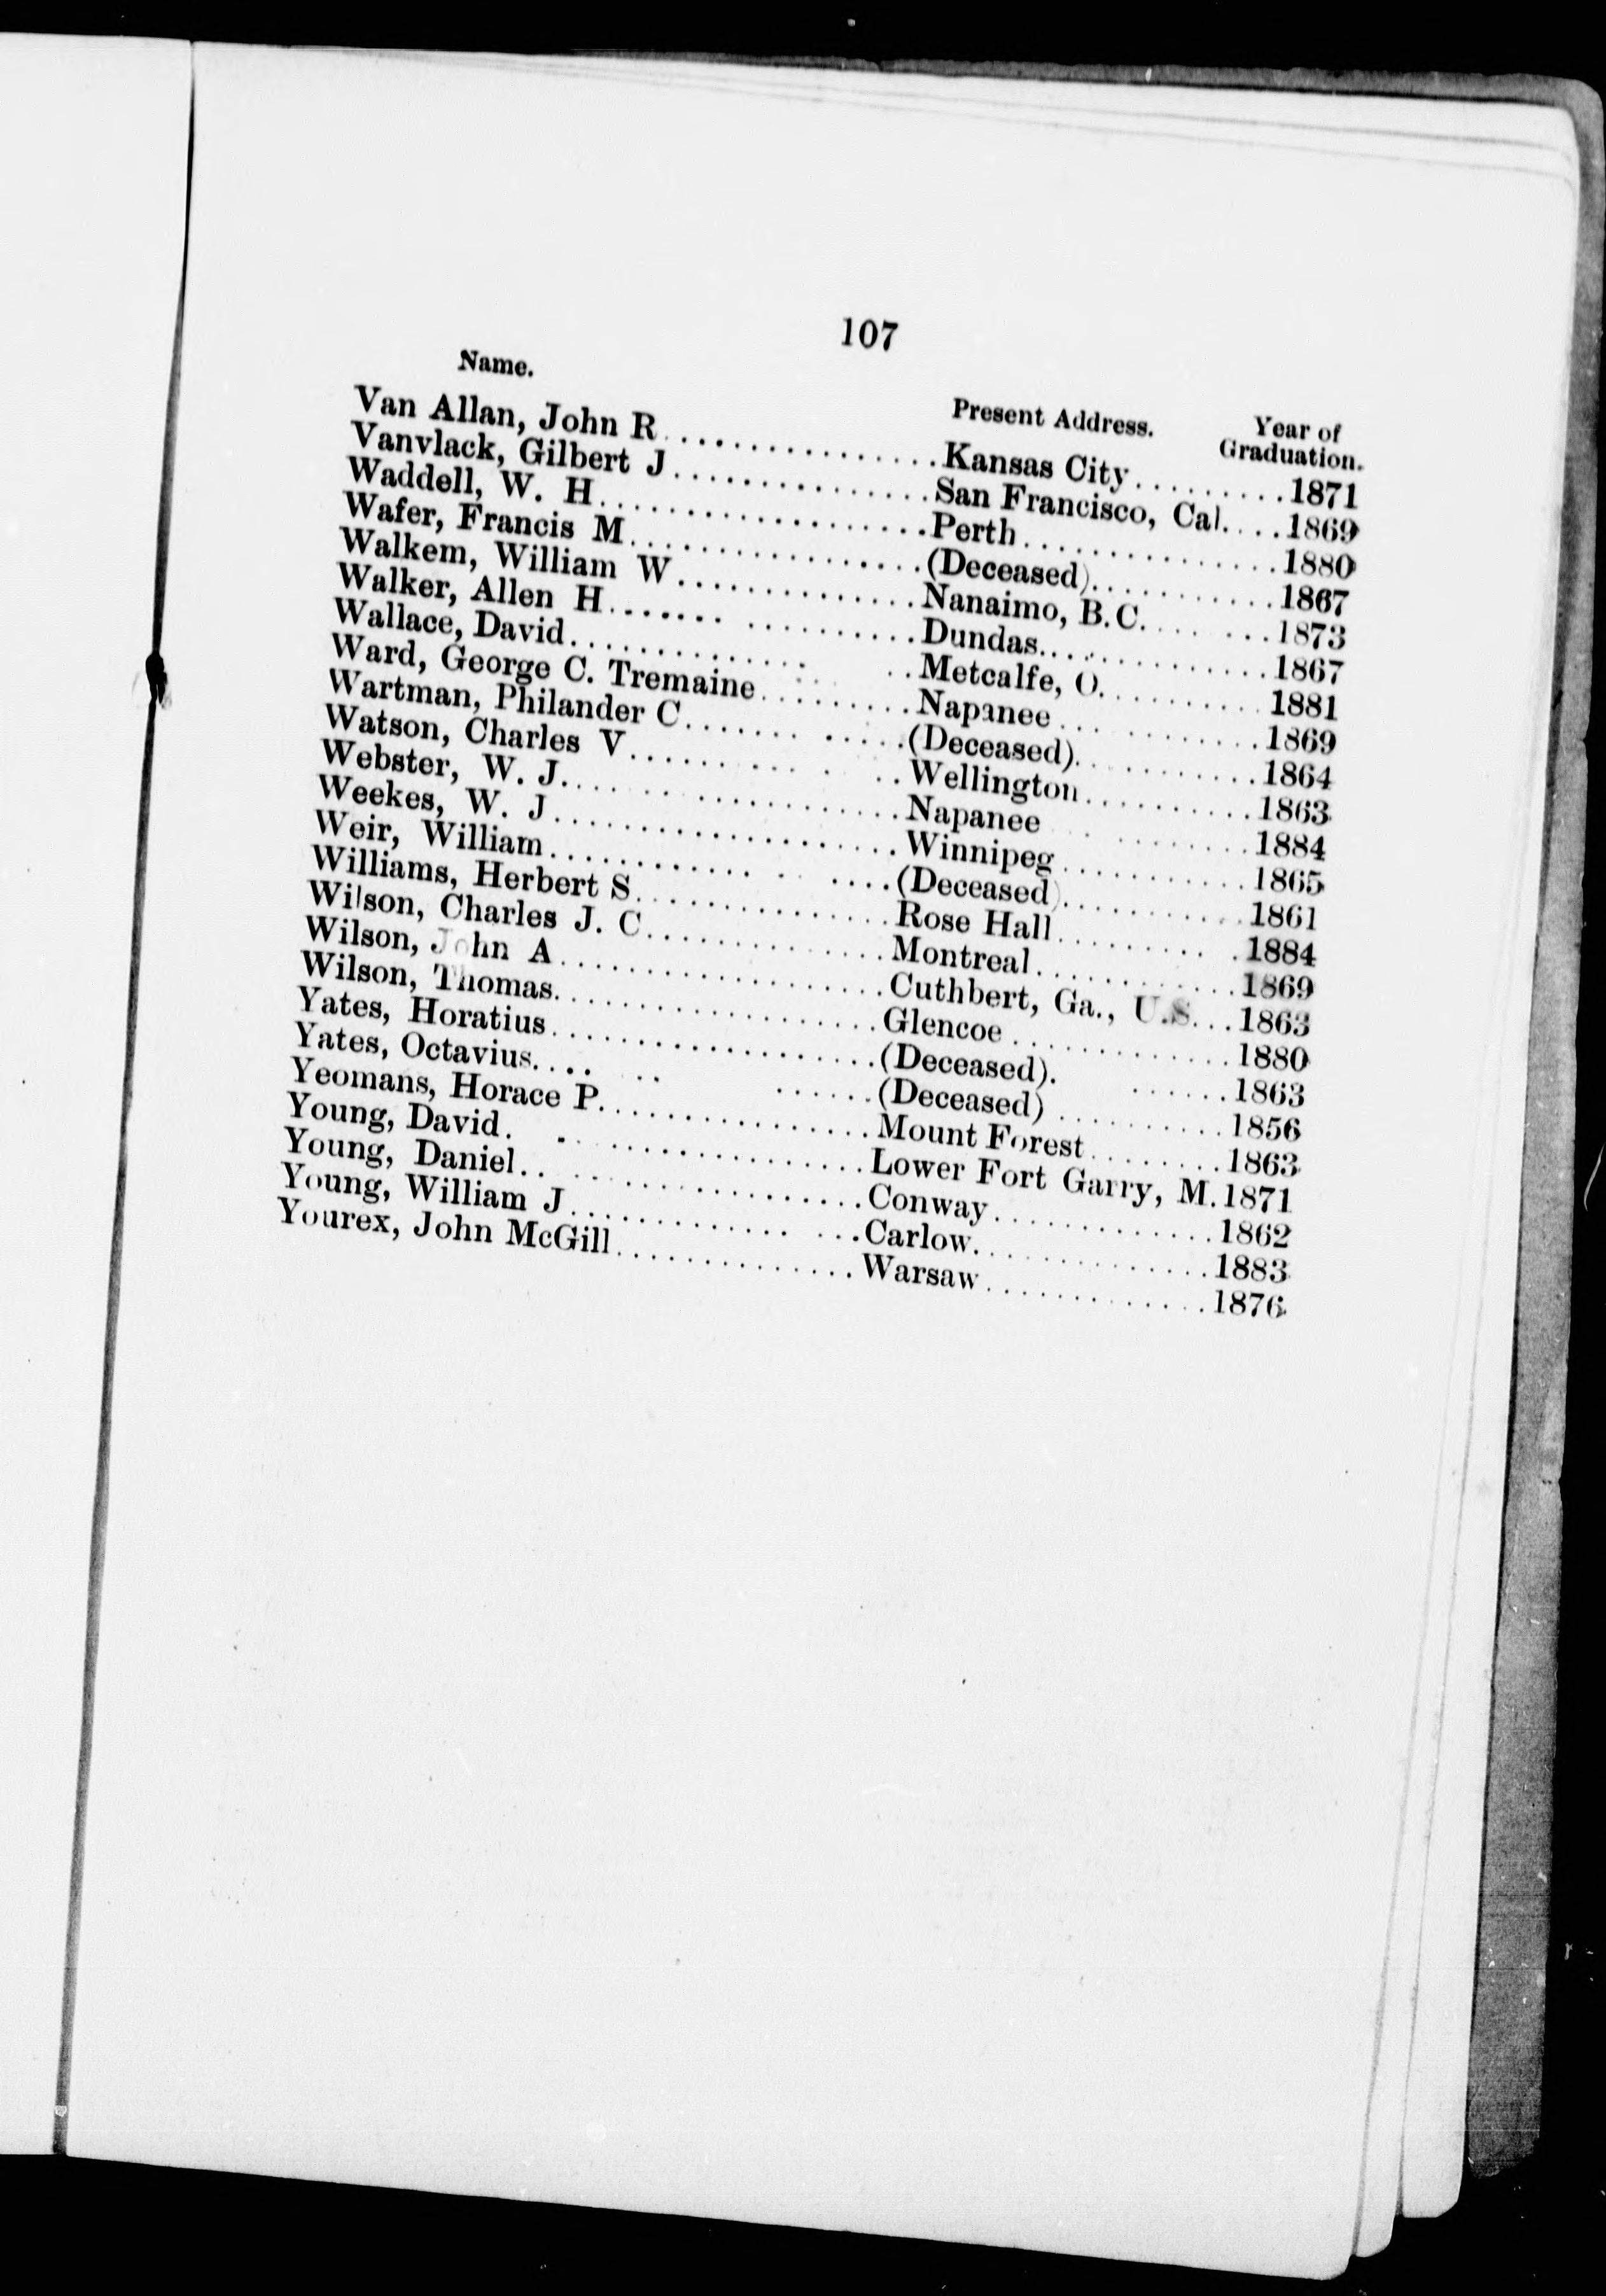 107
Name. Present Address. Year of
Graduation.
Van Allan, John R................Kansas City.........1871
Vanvlack, Gilbert J...............San Francisco, Cal....1869
Waddell, W. H...................Perth...............1880
Wafer, Francis M.................(Deceased)...........1867
Walkem, William W..............Nanaimo, B.C........1873
Walker, Allen H.................Dundas.............1867
Wallace, David................Metcalfe, O..........1881
Ward, George C. Tremaine.........Napanee............1869
Wartman, Philander C............(Deceased)...........1864
Watson, Charles V............Wellington..........1863
Webster, W. J...................Napanee.........1884
Weekes, W. J....................Winnipeg...........1865
Weir, William.................(Deceased)...........1861
Williams, Herbert S...............Rose Hall..........1884
Wilson, Charles J. C..............Montreal............1869
Wilson, John A...................Cuthbert, Ga., U.S...1863
Wilson, Thomas...................Glencoe.............1880
Yates, Horatius...................(Deceased).......1863
Yates, Octavius............(Deceased)..........1856
Yeomans, Horace P................Mount Forest........1863
Young, David.................Lower Fort Garry, M.1871
Young, Daniel.................Conway.............1862
Young, William J...............Carlow..............1883
Yourex, John McGill..............Warsaw.............1876